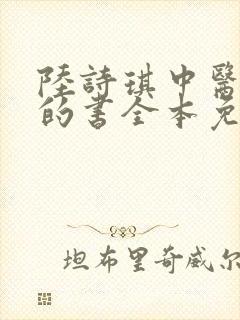 陸詩琪中醫
的書全本免
坦布里奇威尔